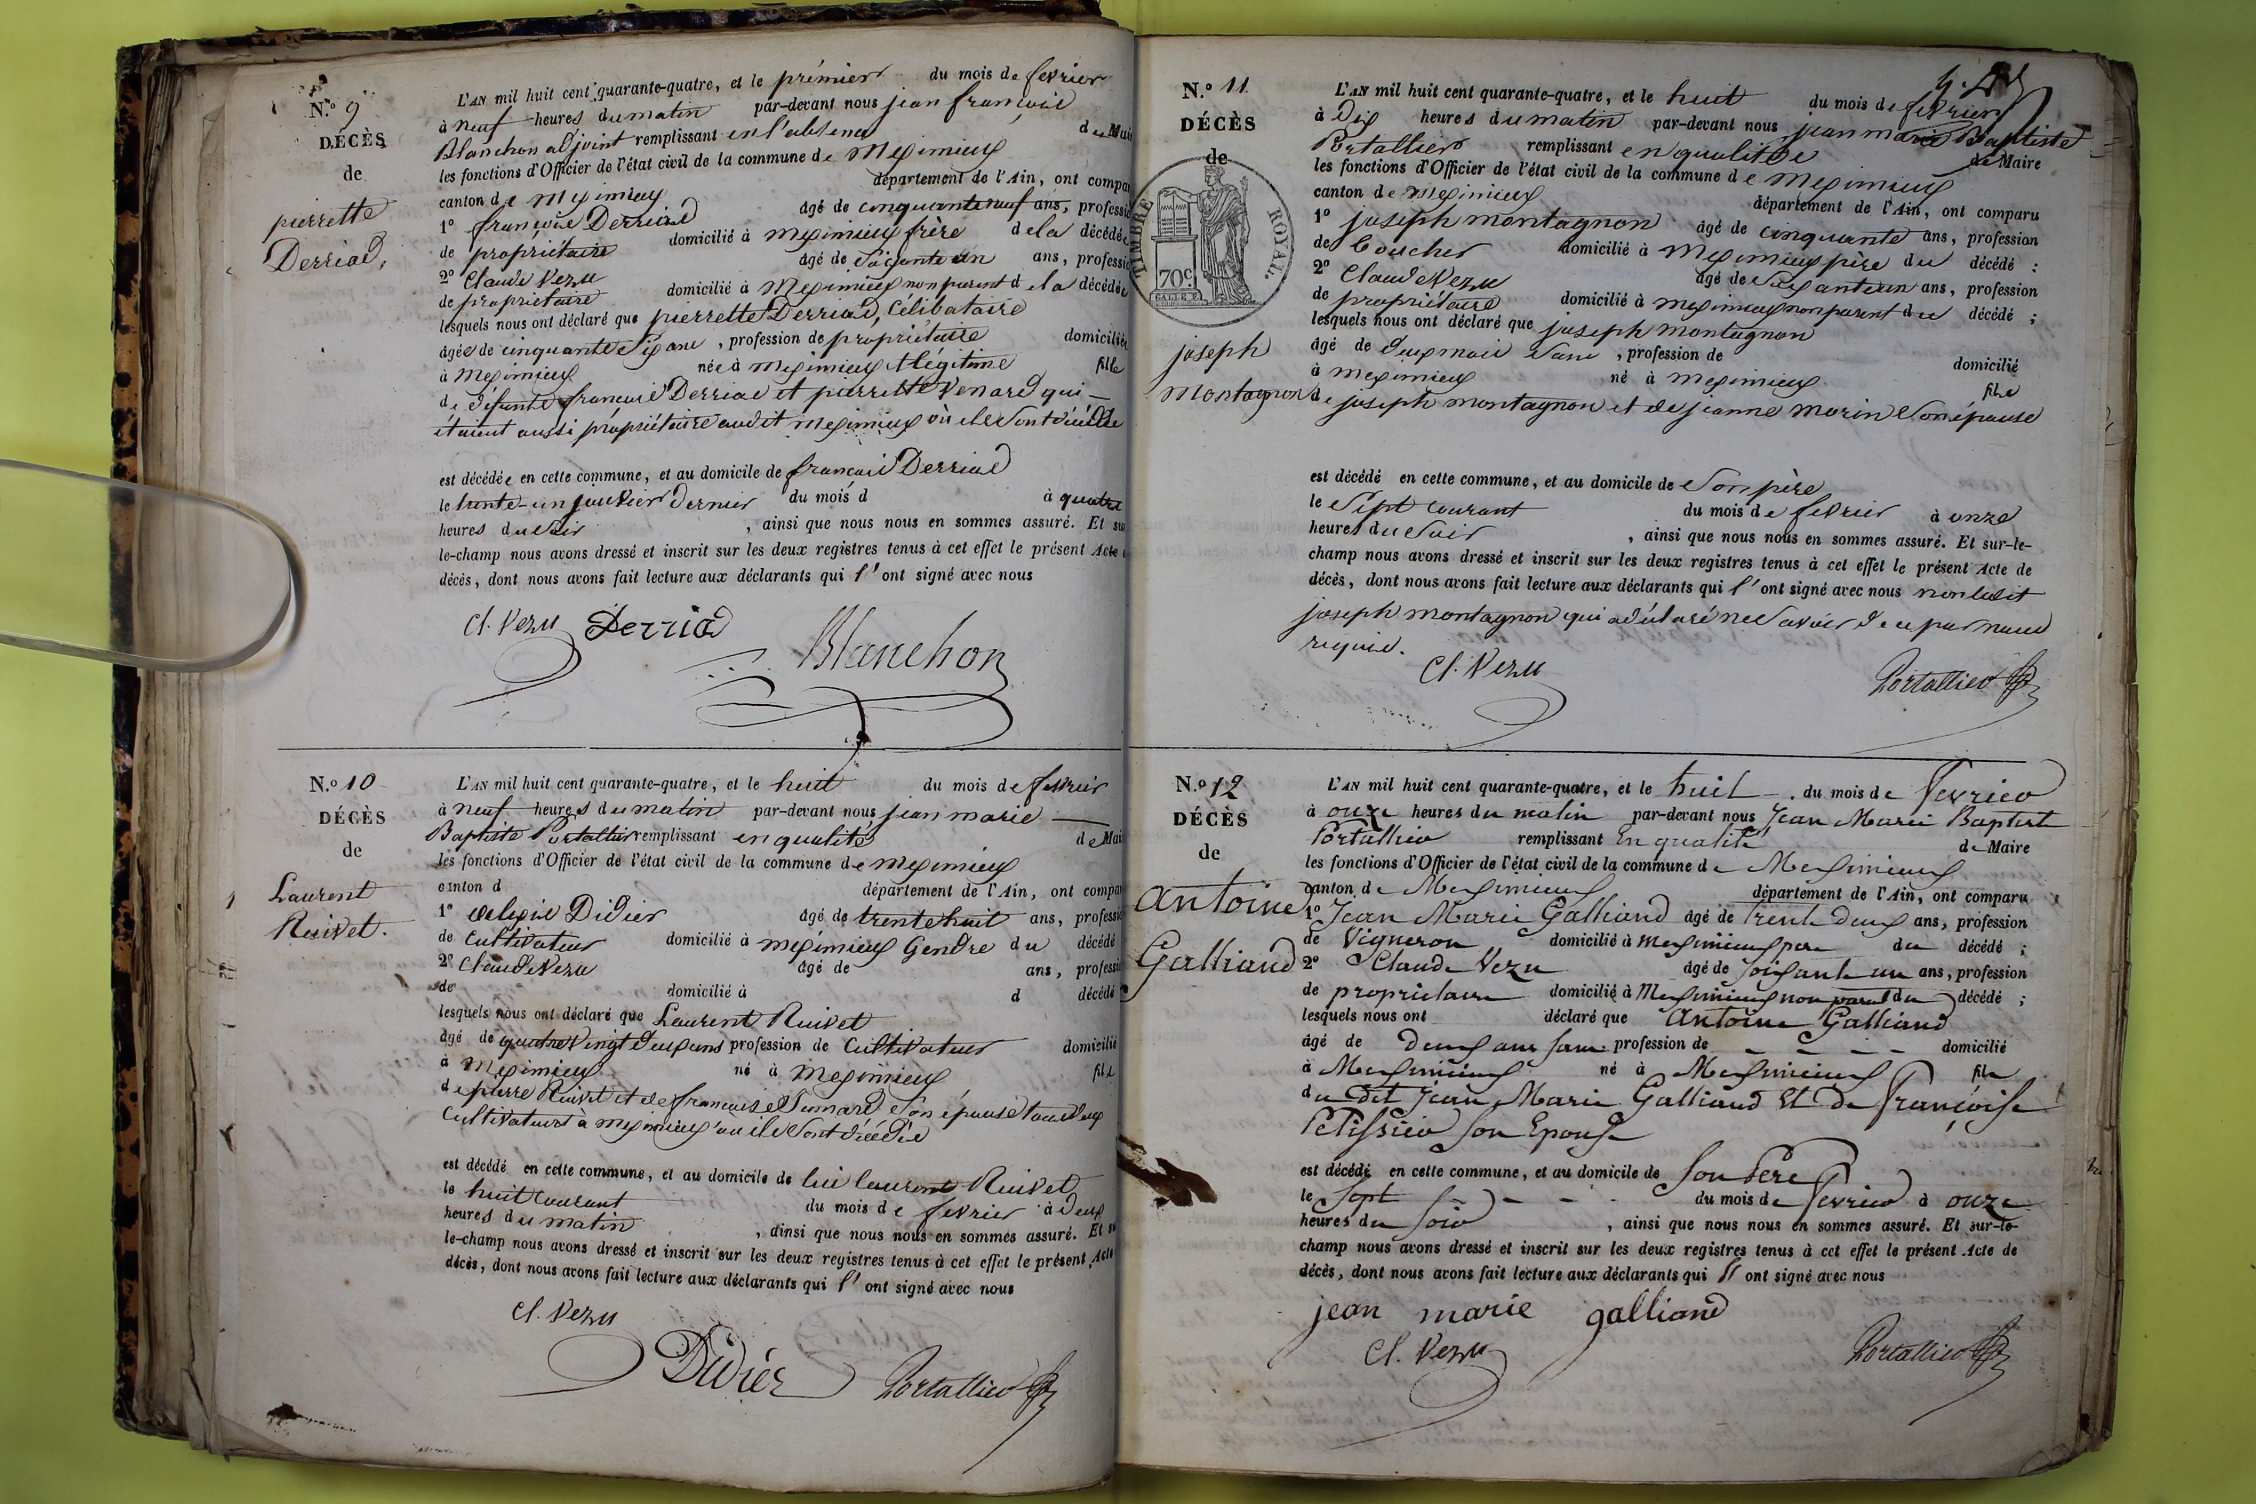 N.º 9
DÉCÈS
de
pierrette
Derriad,
L'AN mil huit cent quarante-quatre, et le prémier du mois de fevrier
à neuf heures du matin par-devant nous jean françois
Blanchon adjoint remplissant en l'absence du Mai
les fonctions d'Officier de l'état civil de la commune de Meximieux
canton de Meximieux département de l'Ain, ont compa
1º françois Derriad âgé de cinquante neuf ans, professi
de propriétaire domicilié à meximieux frère de la décédée
2º Claude Vezu âgé de soixante un ans, professi
de propriétaire domicilié à Meximieux non parent de la décédée
lesquels nous ont déclaré que pierrette Derriad, Célibataire
âgée de cinquante six ans, profession de propriétaire domiciliée
à Meximieux née à meximieux légitime fille
de défunts françois Derriad et pierrette Venard qui
étaient aussi propriétaire audit meximieux où ils sont décédés
est décédée en cette commune, et au domicile de françois Derriad
le trente-un janvier dernier du mois d à quatre
heures du soir, ainsi que nous nous en sommes assuré. Et su
le-champ nous avons dressé et inscrit sur les deux registres tenus à cet effet le présent Acte
décès, dont nous avons fait lecture aux déclarants qui l' ont signé avec nous
Cl. Vezu Derriad
Blanchon
N.º 10
DÉCÈS
de
Laurent
Ruivet.
L'AN mil huit cent quarante-quatre, et le huit du mois de fevrier
à neuf heures du matin par-devant nous jean marie
Baptiste Portallier remplissant en qualité de Mai
les fonctions d'Officier de l'état civil de la commune de meximieux
canton d département de l'Ain, ont compa
1º alexis Didier âgé de trente huit ans, professi
de Cultivateur domicilié à meximieux Gendre du décédé
2º Claude Vezu âgé de ans, professi
de domicilié à d décédé
lesquels nous ont déclaré que Laurent Ruivet
âgé de quatre vingt deux ans profession de Cultivateur domicilié
à Meximieux né à Meximieux fils
de pierre Ruivet et de françoise Simard son épouse tous deux
Cultivateurs à meximieux où ils sont décédés
est décédé en cette commune, et au domicile de lui laurent Ruivet
le huit courant du mois de fevrier à deux
heures du matin, ainsi que nous nous en sommes assuré. Et su
le-champ nous avons dressé et inscrit sur les deux registres tenus à cet effet le présent Acte
décès, dont nous avons fait lecture aux déclarants qui l' ont signé avec nous
Cl. Vezu
Didier Portallier
N.º 11
DÉCÈS
de
TIMBRE ROYAL
70c.
joseph
Montagnon
L'AN mil huit cent quarante-quatre, et le huit du mois de fevrier
à Dix heures du matin par-devant nous jean marie Baptiste
Portallier remplissant en qualité de Maire
les fonctions d'Officier de l'état civil de la commune de meximieux
canton de meximieux département de l'Ain, ont comparu
1º joseph montagnon âgé de cinquante ans, profession
de Boucher domicilié à Meximieux père du décédé ;
2º Claude Vezu âgé de soixante un ans, profession
de propriétaire domicilié à meximieux non parent du décédé ;
lesquels nous ont déclaré que joseph montagnon
âgé de deux mois sans, profession de domicilié
à meximieux né à meximieux fils
de joseph montagnon et de jeanne morin son épouse
est décédé en cette commune, et au domicile de son père
le sept courant du mois de fevrier à onze
heures du soir, ainsi que nous nous en sommes assuré. Et sur-le-
champ nous avons dressé et inscrit sur les deux registres tenus à cet effet le présent Acte de
décès, dont nous avons fait lecture aux déclarants qui l' ont signé avec nous non ledit
joseph montagnon qui a déclaré ne savoir de ce par nous
requis.
Cl. Vezu Portallier
N.º 12
DÉCÈS
de
Antoine
Galliand
L'AN mil huit cent quarante-quatre, et le huit du mois de Fevrier
à onze heures du matin par-devant nous Jean Marie Baptist
Portallier remplissant En qualité de Maire
les fonctions d'Officier de l'état civil de la commune de Meximieux
canton de Meximieux département de l'Ain, ont comparu
1º Jean Marie Galliand âgé de trente deux ans, profession
de Vigneron domicilié à meximieux pere du décédé ;
2º Claude Vezu âgé de soixante un ans, profession
de propriétaire domicilié à Meximieux non parent du décédé ;
lesquels nous ont déclaré que Antoine Galliand
âgé de deux ans sans profession de domicilié
à Meximieux né à Meximieux fils
du dit Jean Marie Galliand Et de Françoise
Petissier son Epouse
est décédé en cette commune, et au domicile de son Pere
le Sept du mois de Fevrier à onze
heures du soir, ainsi que nous nous en sommes assuré. Et sur-le-
champ nous avons dressé et inscrit sur les deux registres tenus à cet effet le présent Acte de
décès, dont nous avons fait lecture aux déclarants qui l' ont signé avec nous
jean marie galliand
Cl. Vezu Portallier